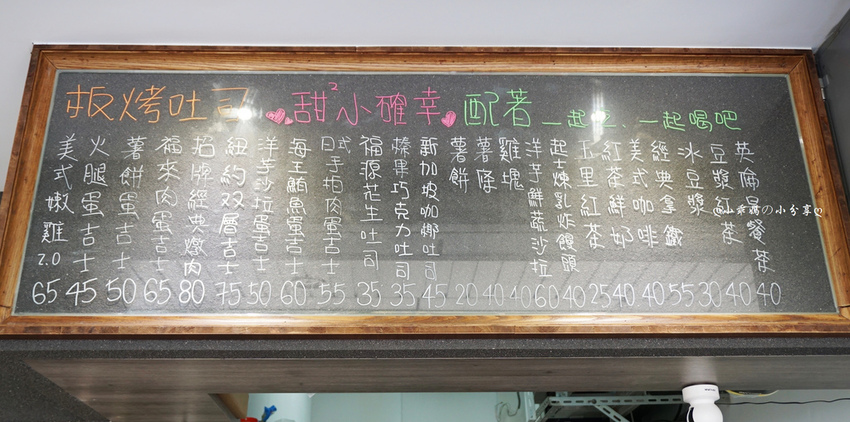 板烤吐司 甜²小確幸 配著一起吃 一起喝吧
美式嫩雞2.0 65
火腿蛋吉士 45
薯餅蛋吉士 50
福來肉蛋吉士 65
招牌經典燉肉 80
紐約双層吉士 75
洋芋沙拉蛋吉士 50
海王鮪魚蛋吉士 60
日式手拍肉蛋吉士 55
福源花生吐司 35
榛果巧克力吐司 35
新加坡咖椰吐司 45
薯餅 20
薯條 40
雞塊 40
洋芋鮮蔬沙拉 60
起士煉乳炸饅頭 40
玉里紅茶 25
紅茶鮮奶 40
美式咖啡 40
經典拿鐵 55
冰豆漿 30
豆漿紅茶 40
英倫早餐茶 40